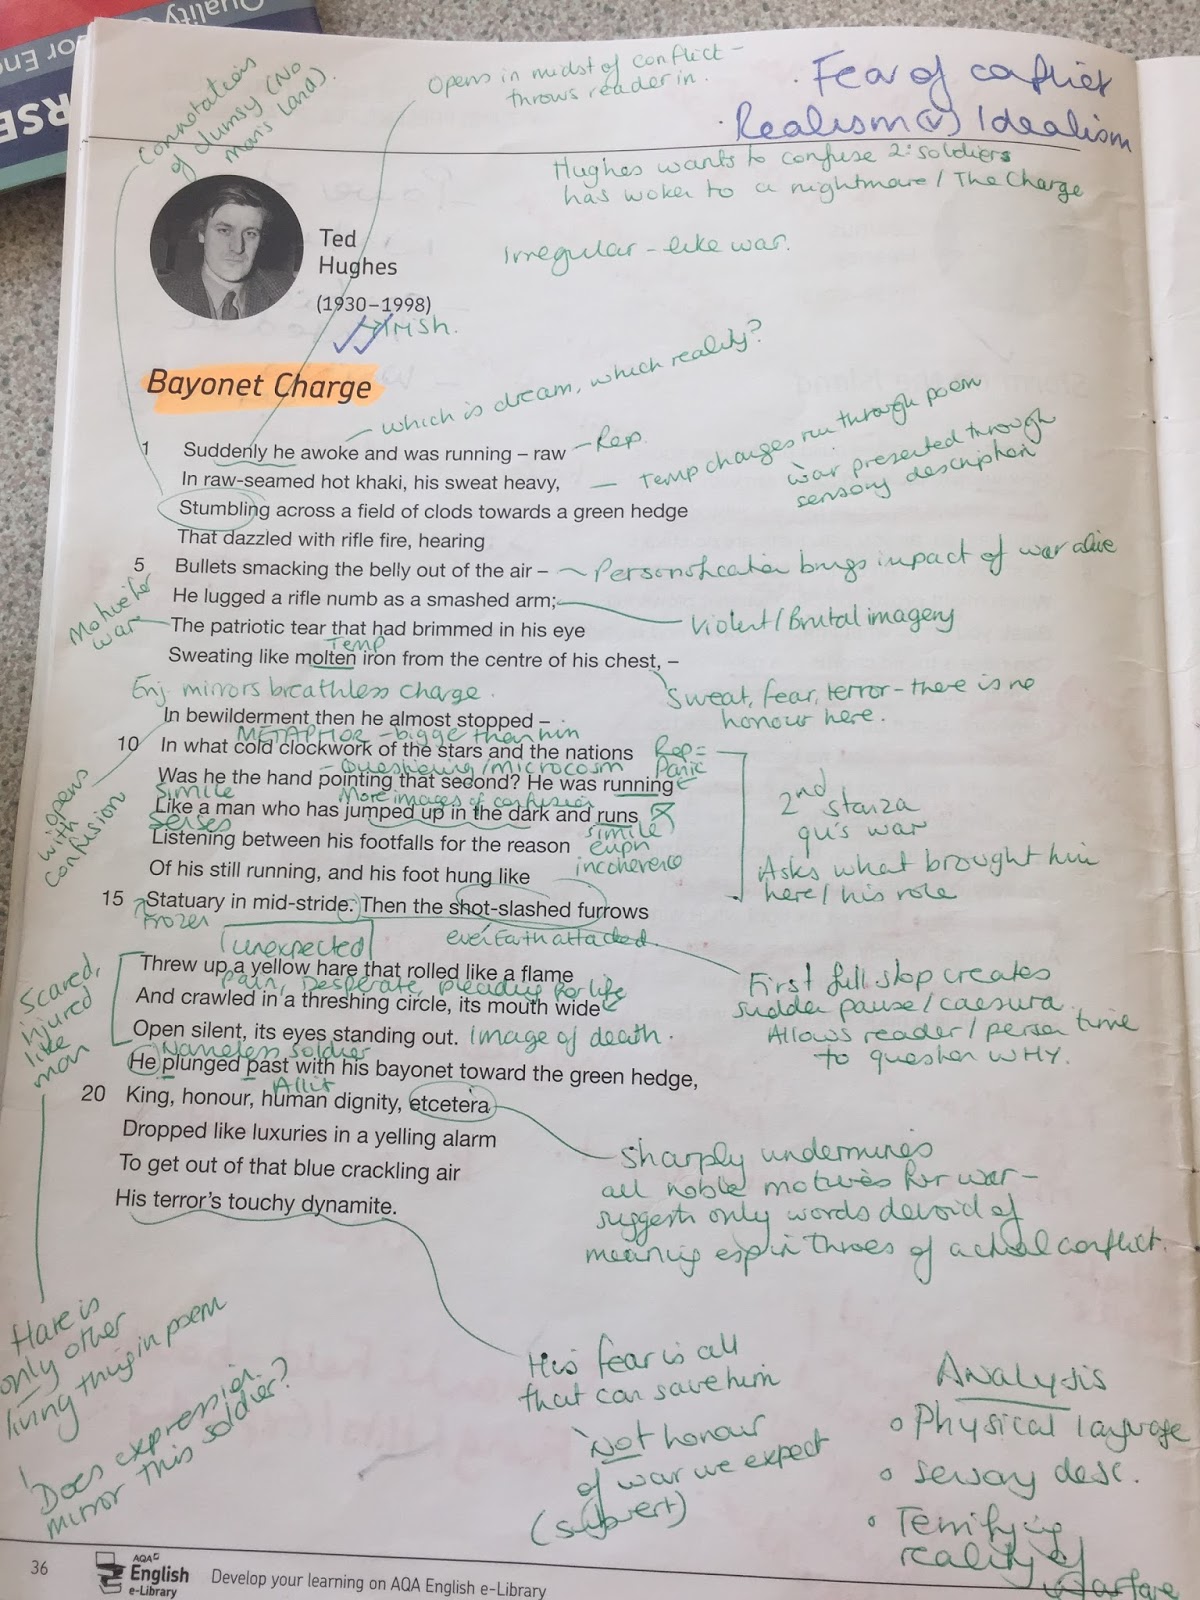 Quality
for Eng
RSE
Connotations
of clumsy (No
man's land).
Opens in midst of conflict –
throws reader in.
· Fear of conflict
· Realism (v) Idealism
Hughes wants to confuse 2: soldiers
has woken to a nightmare / The Charge
Irregular – like war.
Ted
Hughes
(1930–1998)
Bayonet Charge
– which is dream, which reality?
1 Suddenly he awoke and was running – raw
– Rep.
In raw-seamed hot khaki, his sweat heavy,
– Temp changes run through poem
war presented through
sensory description
Stumbling across a field of clods towards a green hedge
That dazzled with rifle fire, hearing
5 Bullets smacking the belly out of the air –
– Personification brings impact of war alive
He lugged a rifle numb as a smashed arm;
Violent / Brutal imagery
Motive for
war
The patriotic tear that had brimmed in his eye
Temp
Sweating like molten iron from the centre of his chest, –
Sweat, fear, terror – there is no
honour here.
Enj. mirrors breathless charge.
In bewilderment then he almost stopped –
METAPHOR – bigger than him
10 In what cold clockwork of the stars and the nations
Rep =
Panic
– Questioning / microcosm
Was he the hand pointing that second? He was running
Simile
More images of confusion
Like a man who has jumped up in the dark and runs
senses
simile
Listening between his footfalls for the reason
incoherence
Of his still running, and his foot hung like
opens
with
confusion
2nd
stanza
qu's war
Asks what brought him
here / his role
15 Statuary in mid-stride. Then the shot-slashed furrows
Frozen
unexpected
even Earth attacked.
Threw up a yellow hare that rolled like a flame
Pain, Desperate, pleading for life
And crawled in a threshing circle, its mouth wide
Open silent, its eyes standing out.
Image of death.
First full stop creates
sudden pause / caesura.
Allows reader / person time
to question WHY.
Scared,
injured
like
man
Nameless soldier
He plunged past with his bayonet toward the green hedge,
Allit
20 King, honour, human dignity, etcetera
Dropped like luxuries in a yelling alarm
To get out of that blue crackling air
His terror's touchy dynamite.
Sharply undermines
all noble motives for war –
suggests only words devoid of
meaning esp in throes of actual conflict.
Hare is
only other
living thing in poem
Does expression
mirror this soldier?
His fear is all
that can save him
Not honour
of war we expect
(subvert)
Analysis
o Physical language
o sensory desc.
o Terrifying
reality of
warfare
36
AQA
English
e-Library
Develop your learning on AQA English e-Library